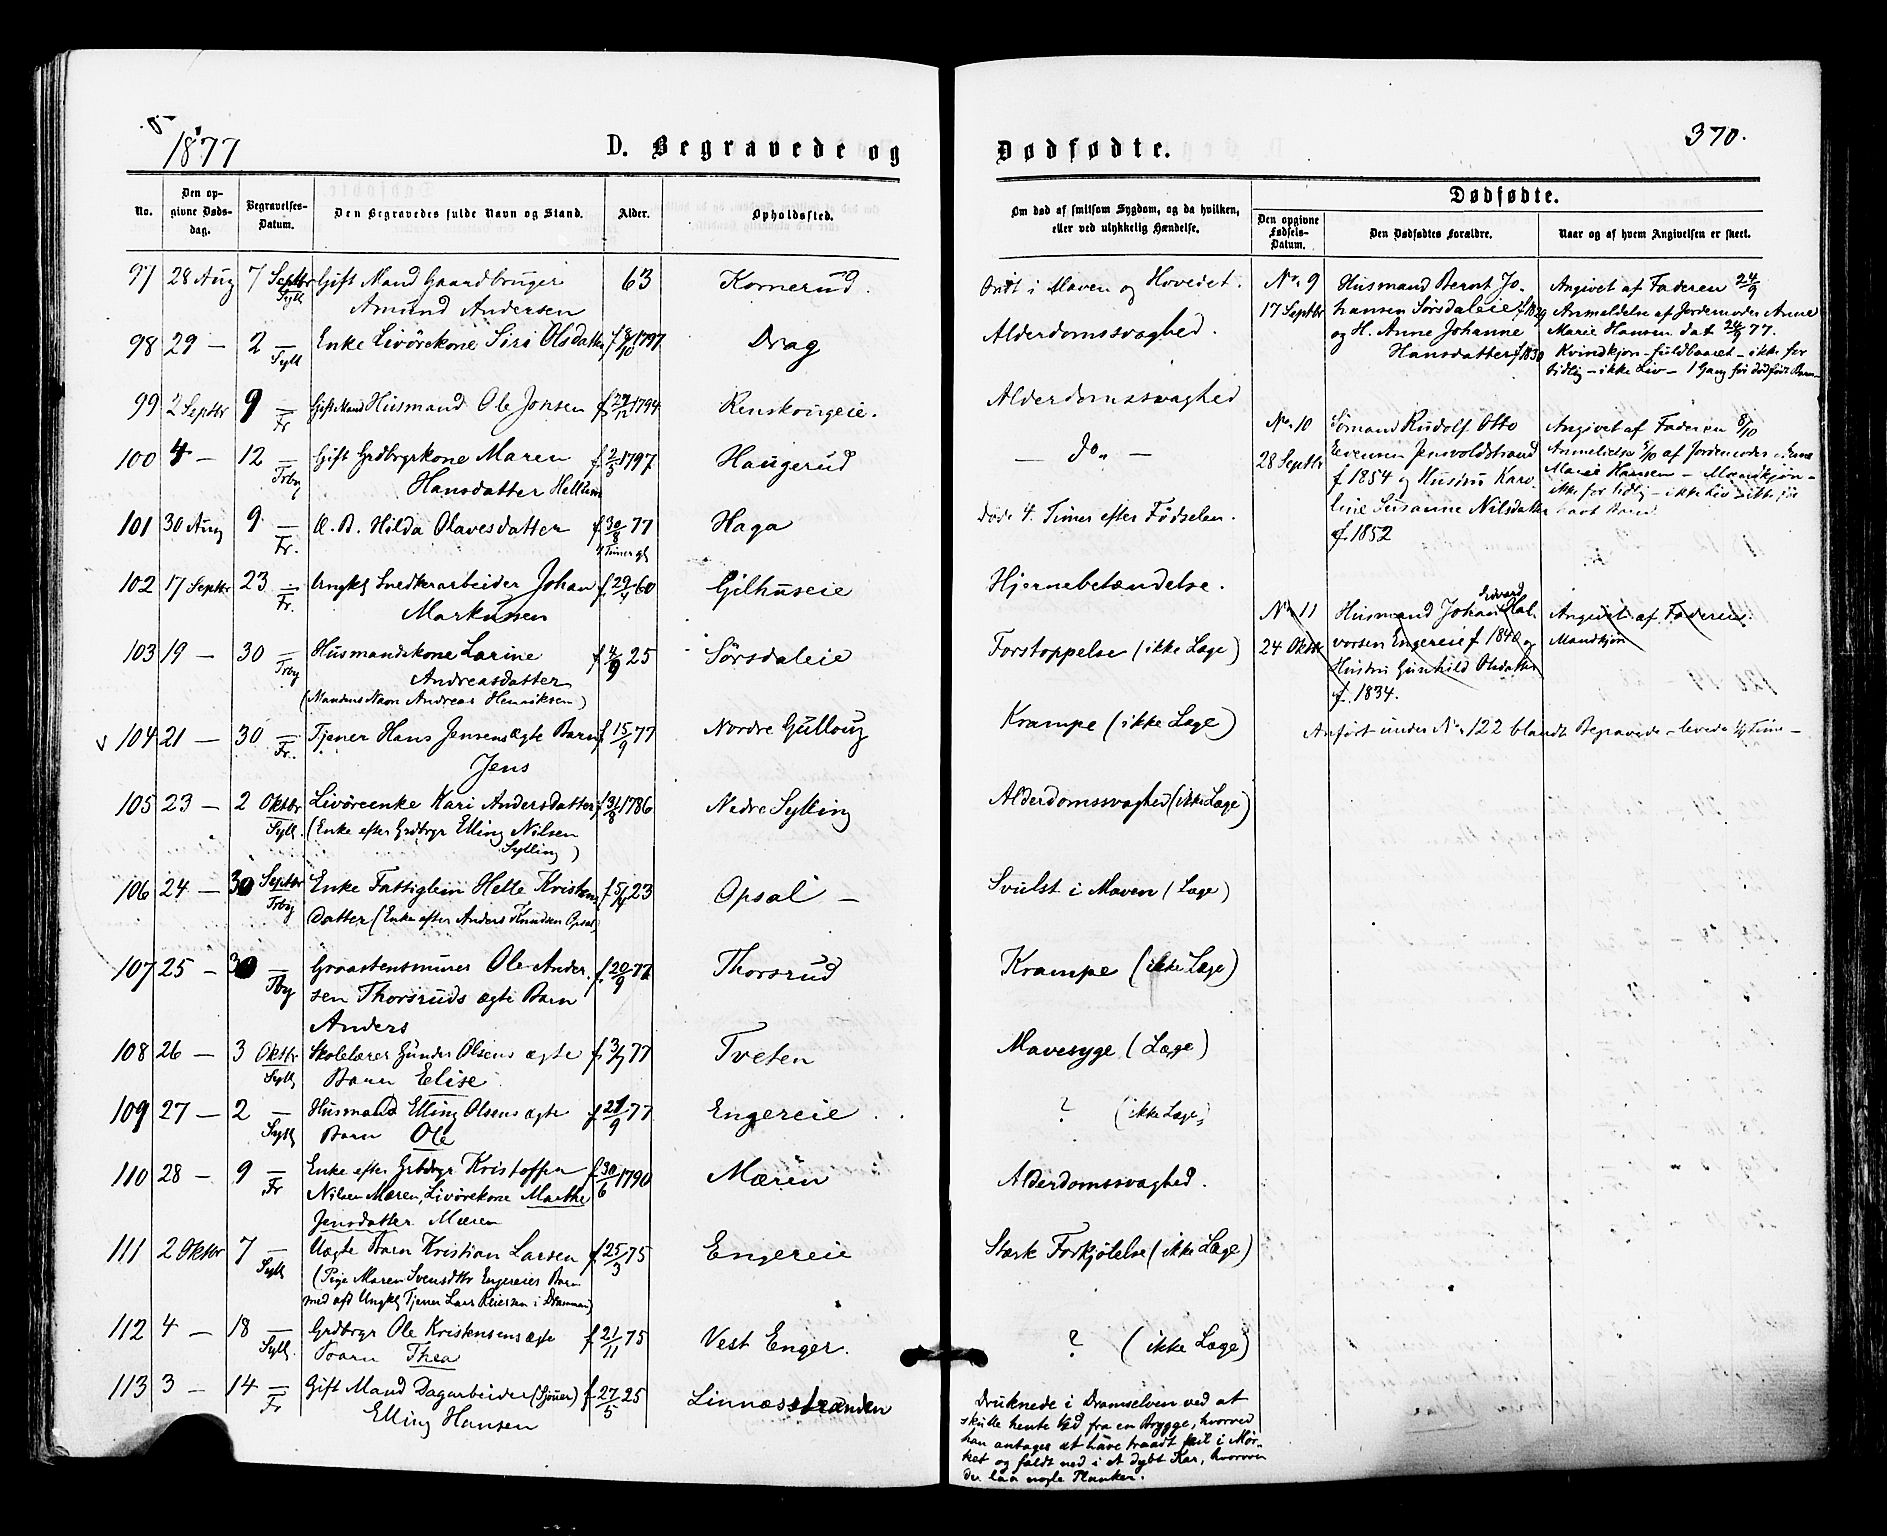 1877
D. Begravede og
No.
Den op-
givne Døds-
dag.
Begravelses-
Datum.
Den Begravedes fulde Navn og Stand.
Alder.
Opholdssted.
97 28 Aug 7 Septbr Gift Mand Gaardbruger 63 Kornerud.
Sylt Amund Andersen
98 29 — 2 — Enke Livörekone Siri Olsdatter f 8/10 1797 Drag
Syll
99 2 Septbr 9 — Gift Mand Husmand Ole Jonsen f. 27/12 1794 Renskougeie.
Fr
100 4 — 12 — Gift Grdbrgrkone Maren f. 2/3 1797 Haugerud
Trby Hansdatter
101 30 Aug 9 — Æ. B. Hilda Olavesdatter f. 30/8 77 Haga
Fr. 4 Timer gl
102 17 Septbr 23 — Ungkl Snedkerarbeider Johan f. 29/4 60 Gilhuseie
Fr. Markussen
103 19 — 30 — Husmandskone Larine f 4/9 25 Sørsdaleie
Trby Andreasdatter
(Mandens Navn Andreas Henriksen)
104 21 — 30 — Tjener Hans Jensens ægte Barn f 15/9 77 Nordre Gulloug
Fr. Jens
105 23 — 2 Oktbr Livöreenke Kari Andersdatter f 31/8 1786 Nedre Sylling
Syll. (Enke efter Grdbrgr Elling Nilsen
Sylling)
106 24 — 30 Septbr Enke Fattiglem Helle Kristens f 5/4 23 Opsal —
Trby datter (Enke efter Anders Knudsen Opsal)
107 25 — 30 — Graastensmurer Ole Ander- f. 20/9 77 Thorsrud
Tby sen Thorsruds ægte Barn
Anders
108 26 — 3 Oktbr Skolelærer Gunder Olsens ægte f. 3/7 77 Tveten
Syll Barn Elise
109 27 — 2 — Husmand Elling Olsens ægte f 21/9 77 Engereie
Syll Barn Ole
110 28 — 9 — Enke efter Grbdrgr Kristoffer f 30/6 1790 Mæren
Fr Nilsen Mæren, Livörekone Marthe
Jensdatter Mæren
111 2 Oktbr 7 — Uægte Barn Kristian Larsen f 25/3 75 Engereie
Syll (Pige Maren Svensdtr Engereies Barn
med afd Ungkl Tjener Lars Reiersen i Drammen)
112 4 — 18 — Grdbrgr Ole Kristensens ægte f 21/11 75 Vest Enger.
Syll. Barn Thea
113 3 — 14 — Gift Mand Dagarbeider (Sjouer) f 27/5 25 Linnæsstranden
Fr Elling Hansen
Dødfødte.
370.
Om død af smitsom Sygdom, og da hvilken,
eller ved ulykkelig Hændelse.
Dødfødte.
Den opgivne
Fødsels-
Datum.
Den Dødfødtes Forældre.
Naar og af hvem Angivelsen er skeet.
Ondt i Maven og Hovedet.
Alderdomssvaghed.
Alderdomssvaghed
— do „ —
Døde 4. Timer efter Fødselen.
Hjernebetændelse.
Forstoppelse (ikke Læge)
Krampe (ikke Læge)
Alderdomssvaghed (ikke Læge)
Svulst i Maven (Læge)
Krampe (ikke Læge)
Mavesyge (Læge)
? (ikke Læge)
Alderdomssvaghed.
Stærk Forkjölelse (ikke Læge)
? (ikke Læge)
Druknede i Dramselven ved at
skulle hente Ved fra en Brygge, hvorved
han antages at have traadt feil i Mør-
ket og faldt ned i et dybt Kar, hvorover
der laa nogle Planker.
No 9 Husmand Bernt Jo- Angivet af Faderen 24/9
17 Septbr hansen Sørsdaleie f 1829 Anmeldelse af Jordemoder Anne
og H. Anne Johanne Marie Hansen dat 24/9 77.
Hansdatter f. 1830 Kvindkjøn – fuldbaaret – ikke for
tidlig – ikke Liv – 1 Gang før dødfødt Barn –
No 10 Sømand Rudolf Otto Angivet af Faderen 8/10
28 Septbr Evensen Jensvoldstrand Anmeldelse 5/10 af Jordemoder Anne
f 1854 og Hustru Karo- Marie Hansen – Mandkjøn –
line Susanne Nilsdatter ikke for tidlig – ikke Liv – ikke før
f. 1852 havt Barn
No 11 Husmand Johan Edvard Hal- Angivet af Faderen.
24 Oktbr vorsen Engereie f. 1840 og Mandkjøn
Hustru Gunhild Olsdatter
f. 1834.
Anført under No 122 blandt Begravede – levede ½ Time –